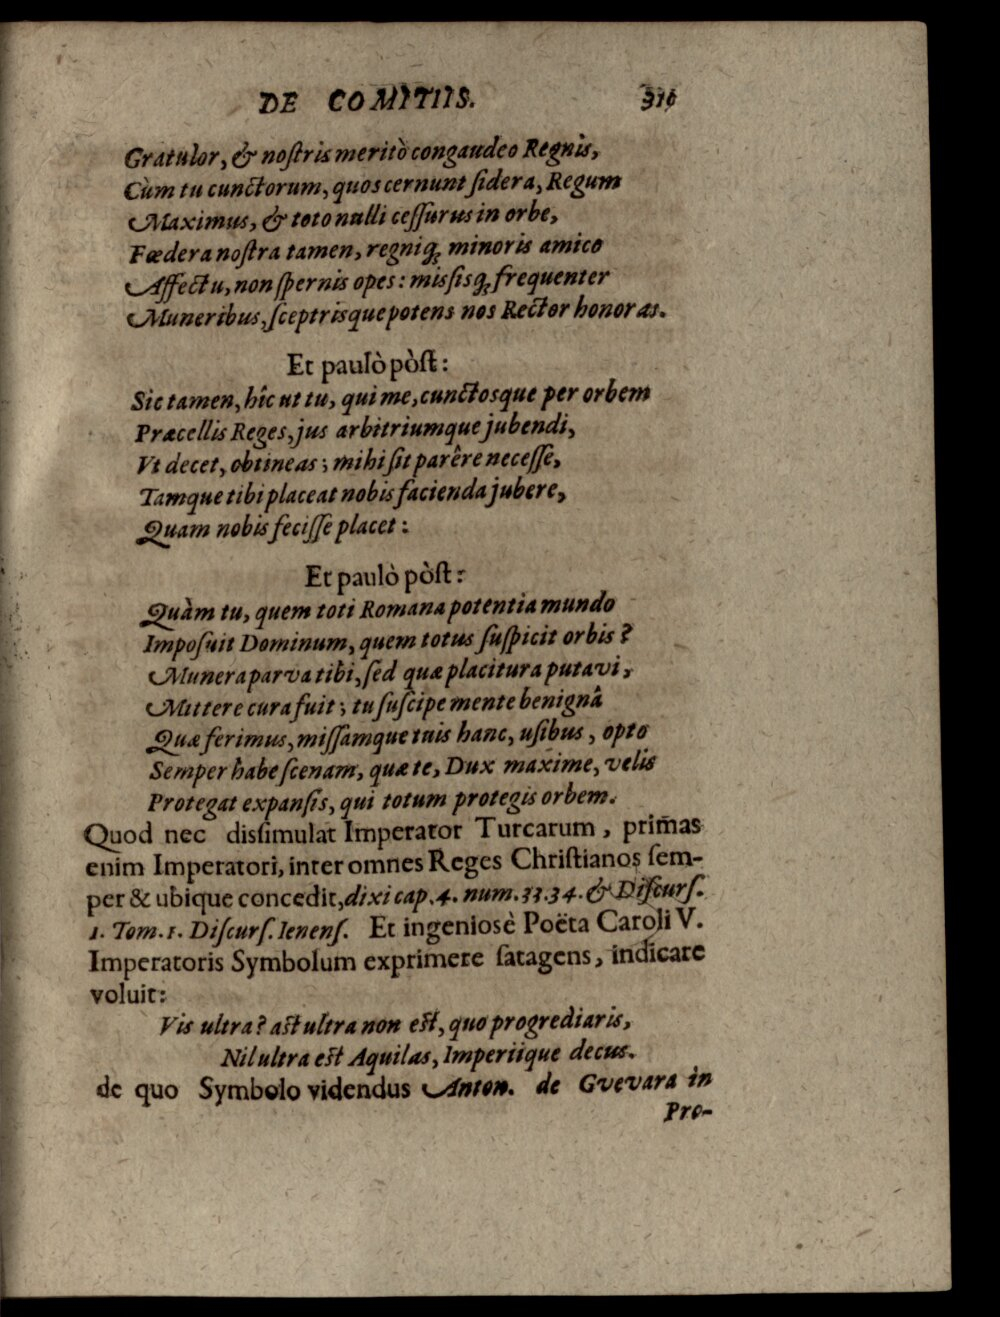 DE COMITIIS. 311
Gratulor, & noſtris meritò congaudeo Regnis,
Cùm tu cunctorum, quos cernunt ſidera, Regum
Maximus, & toto nulli ceſſurus in orbe,
Fœdera noſtra tamen, regniq; minoris amico
Affectu, non ſpernis opes: misſisq; frequenter
Muneribus, ſceptrisque potens nos Rector honoras.
Et paulò pòſt:
Sic tamen, hîc ut tu, qui me, cunctosque per orbem
Præcellis Reges, jus arbitriumque jubendi,
Vt decet, obtineas; mihi ſit parêre neceſſe,
Tamque tibi placeat nobis facienda jubere,
Quam nobis feciſſe placet:
Et paulò pòſt:
Quàm tu, quem toti Romana potentia mundo
Impoſuit Dominum, quem totus ſuſpicit orbis?
Munera parva tibi, ſed quæ placitura putavi,
Mittere cura fuit; tu ſuſcipe mente benignâ
Quæ ferimus, miſſamque tuis hanc, uſibus, opto
Semper habe ſcenam, quæ te, Dux maxime, velis
Protegat expanſis, qui totum protegis orbem.
Quod nec disſimulat Imperator Turcarum, primas
enim Imperatori, inter omnes Reges Chriſtianos ſem-
per & ubique concedit, dixi cap. 4. num. 33. 34. & Diſcurſ.
1. Tom. 1. Diſcurſ. Ienenſ. Et ingeniosè Poëta Caroli V.
Imperatoris Symbolum exprimere ſatagens, indicare
voluit:
Vis ultra? aſt ultra non eſt, quo progrediaris,
Nil ultra eſt Aquilas, Imperiique decus.
de quo Symbolo videndus Anton. de Gvevara in
Pro-